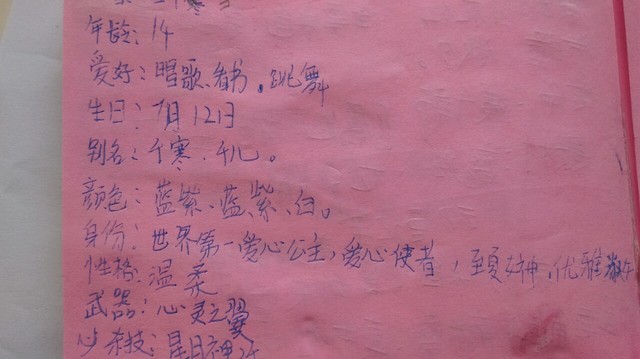 年龄：14
爱好：唱歌、看书。跳舞
生日：7月12日
别名：千寒、千儿。
颜色：蓝紫、蓝、紫、白。
身份：世界第一爱心公主，爱心使者，
女神、优雅
性格：温柔
武器：心灵之翼
必杀技：星月神